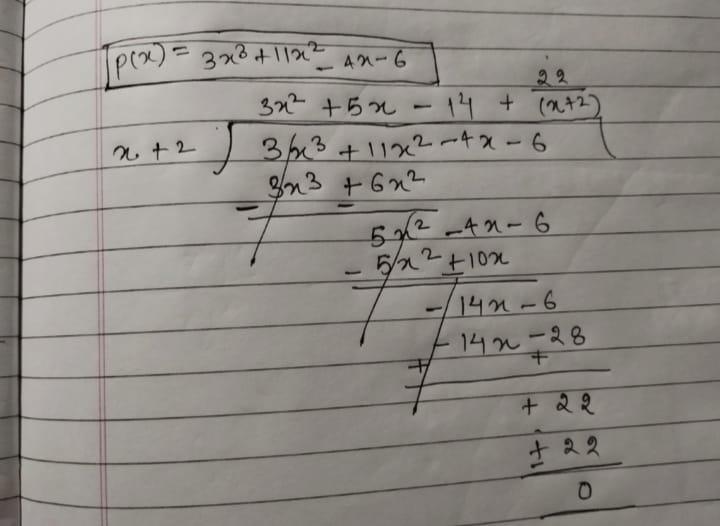 p(x) = 3x³ + 11x² - 4x - 6
22
3x² + 5x - 14 + (x+2)
x + 2 ) 3x³ + 11x² - 4x - 6
3x³ + 6x²
- -
5x² - 4x - 6
- 5x² + 10x
-
- 14x - 6
- 14x - 28
+ +
+ 22
+ 22
-
0